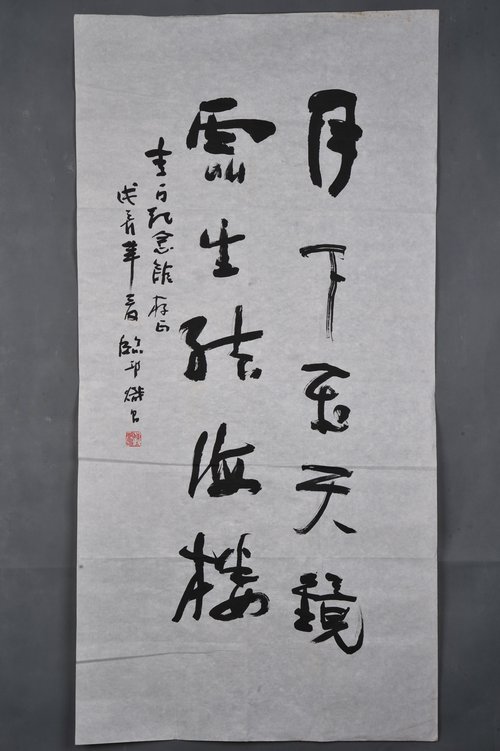 月下飛天鏡
雲生結海樓
李白紀念館存正
戊辰年春臨邛